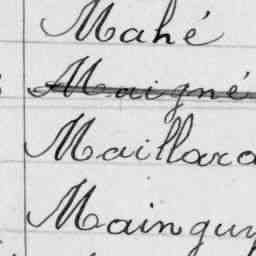 Mahé
Maigné
Maillard
Mainguy